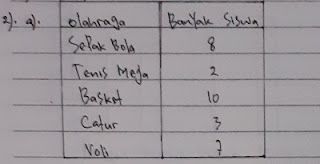 2). a). olahraga Banyak Siswa
Sepak Bola 8
Tenis Meja 2
Basket 10
Catur 3
Voli 7